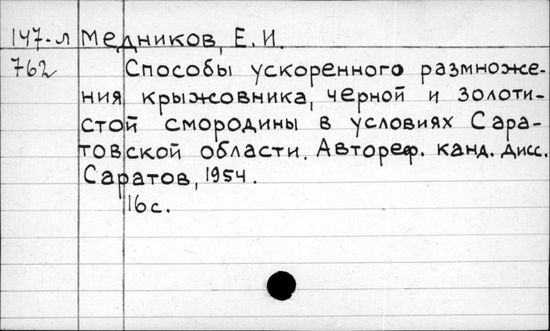 147-л Медников, Е.И.
762 Способы ускоренного размноже-
ния крыжовника, черной и золоти-
стой смородины в условиях Сара-
товской области. Автореф. канд. дисс.
Саратов, 1954.
16с.